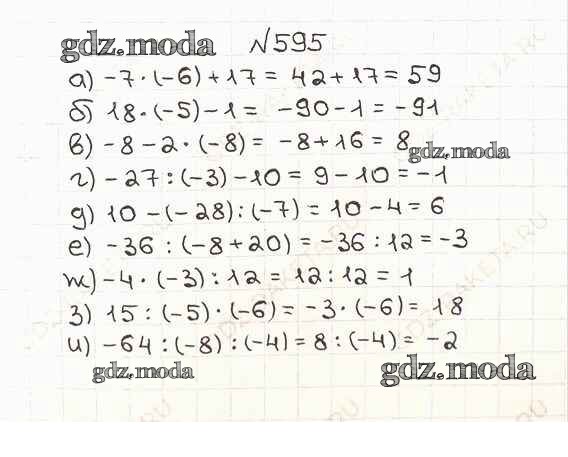 gdz.moda №595
а) -7·(-6)+17= 42+17= 59
б) 18·(-5)-1= -90-1= -91
в) -8-2·(-8)= -8+16= 8
gdz.moda
г) -27:(-3)-10= 9-10= -1
д) 10-(-28):(-7)= 10-4= 6
е) -36:(-8+20)= -36:12= -3
ж) -4·(-3):12= 12:12= 1
з) 15:(-5)·(-6)= -3·(-6)= 18
и) -64:(-8):(-4)= 8:(-4)= -2
gdz.moda gdz.moda